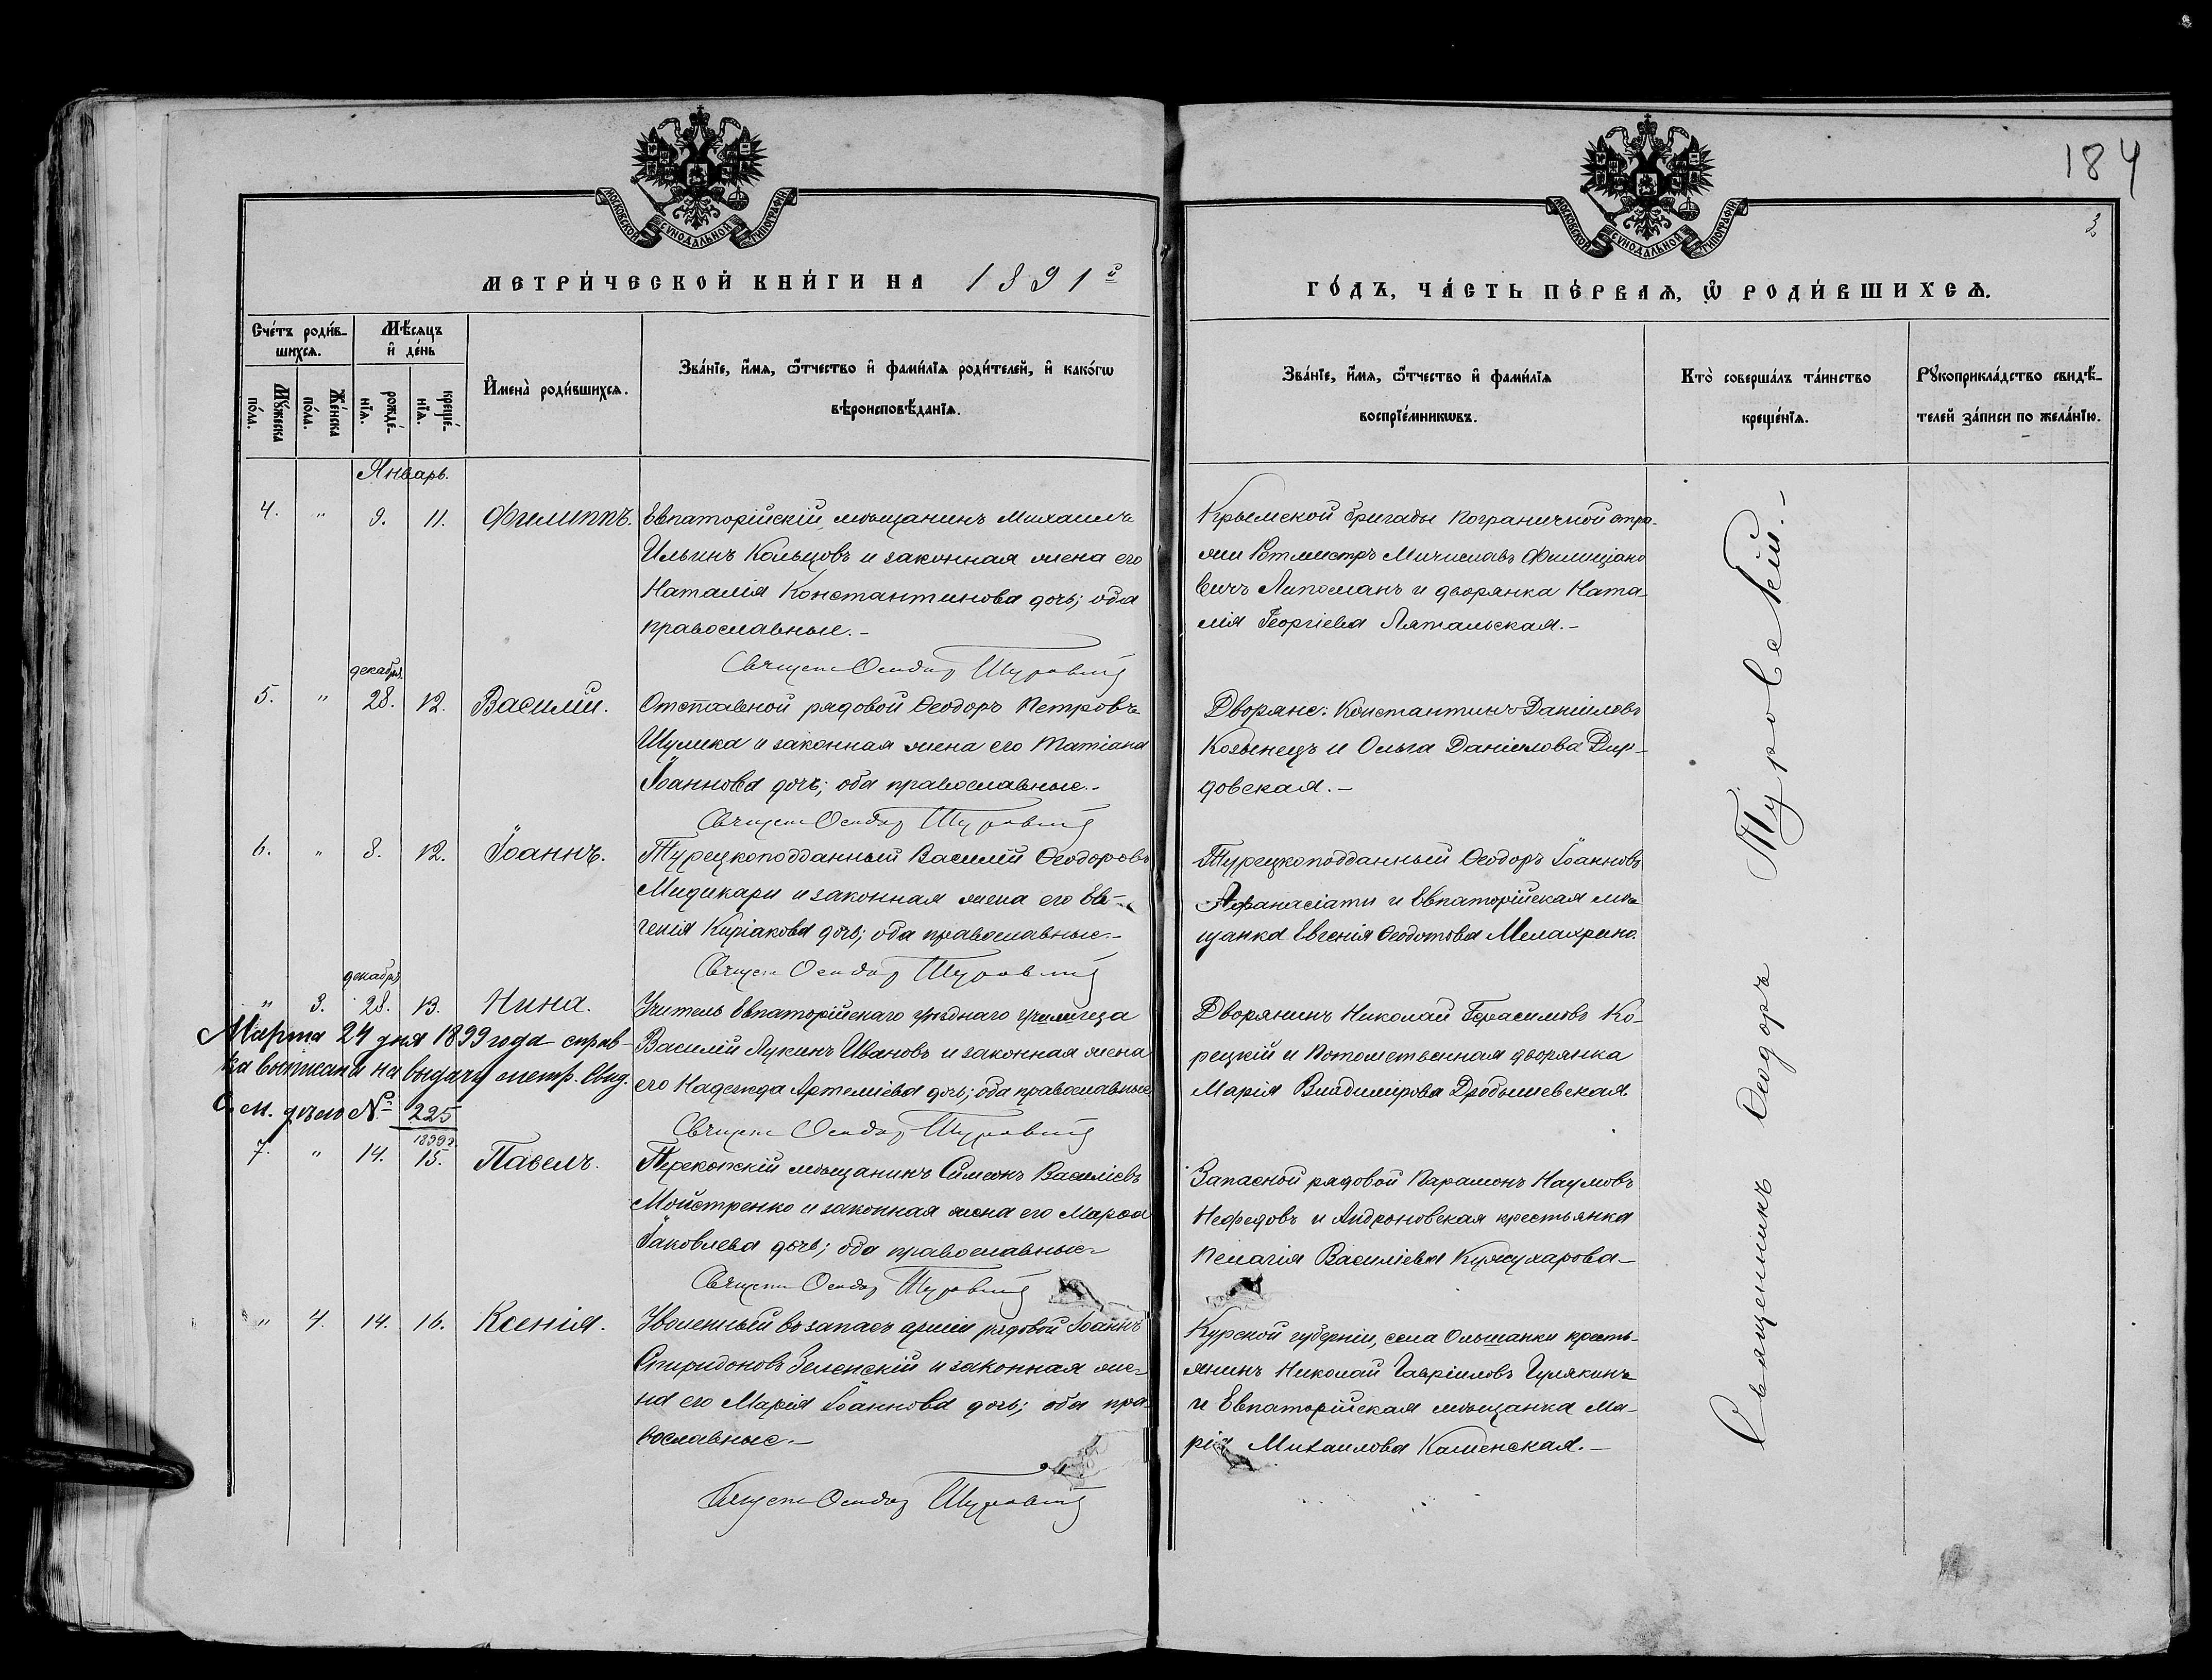 184
3.
МОСКОВСКОЙ СѴНОДАЛЬНОЙ ТИПОГРАФІИ
МОСКОВСКОЙ СѴНОДАЛЬНОЙ ТИПОГРАФІИ
МЕТРИ́ЧЕСКОЙ КНИ́ГИ НА 1891й
ГО́ДЪ, ЧА́СТЬ ПЕ́РВАѦ, Ѽ РОДИ́ВШИХСѦ.
Сче́тъ роди́в-
шихсѧ.
Мѣ́сѧцъ
и҆ де́нь
Мꙋ́жеска
по́ла.
Же́нска
по́ла.
рожде́-
нїѧ.
креще́-
нїѧ.
И҆мена̀ роди́вшихсѧ.
Зва́нїе, и҆́мѧ, ѻ҆́тчество и҆ фами́лїѧ роди́телей, и҆ како́гѡ
вѣроисповѣ́данїѧ.
Зва́нїе, и҆́мѧ, ѻ҆́тчество и҆ фами́лїѧ
воспрїе́мникѡвъ.
Кто̀ соверша́лъ та́инство
креще́нїѧ.
Рꙋкоприкла́дство свидѣ́-
телей за́писи по жела́нїю.
Январь.
4. " 9. 11. Филиппъ.
Евпаторійскій мѣщанинъ Михаилъ
Ильинъ Кольцовъ и законная жена его
Наталія Константинова дочь; оба
православные.-
Священ Ѳеодор Туровскій
Крымской бригады пограничной стра-
жи Ротмистръ Мичиславъ
вичъ и дворянка Ната-
лія Георгіева Лятальская.-
декабря.
5. " 28. 12. Василій.
Отставной рядовой Ѳеодоръ Петровъ
Шулика и законная жена его Татіана
Іоаннова дочь; оба православные.-
Священ Ѳеодор Туровскій
Дворяне: Константинъ Даніиловъ
Козынецъ и Ольга Даніилова
довская.-
6. " 8. 12. Іоаннъ.
Турецкоподданный Василій Ѳеодоровъ
Мидикари и законная жена его Ев-
генія Киріакова дочь; оба православные.-
Священ Ѳеодор Туровскій
Турецкоподданный Ѳеодоръ Іоанновъ
Афанасіати и Евпаторійская мѣ-
щанка Евгенія Ѳеодотова Мелахрино.
декабря
" 3. 28. 13. Нина.
Учитель Евпаторійскаго уѣзднаго училища
Василій Лукинъ Ивановъ и законная жена
его Надежда Артеміева дочь; оба православные
Священ Ѳеодор Туровскій
Марта 24 дня 1899 года справ-
ка выписана на выдачу метр. свид.
См. дѣло № 225
1899 г.
Дворянинъ Николай Герасимовъ Ко-
рецкій и потомственная дворянка
Марія Владимірова Дробышевская.
7. " 14. 15. Павелъ.
Перекопскій мѣщанинъ Симеонъ Василіевъ
Мойстренко и законная жена его Марѳа
Іаковлева дочь; оба православные-
Священ Ѳеодор Туровскій
Запасной рядовой Парамонъ Наумовъ
Нефедовъ и Андроновская крестьянка
Пелагія Василіева Кужухарова-
" 4. 14. 16. Ксенія.
Уволенный въ запасъ арміи рядовой Іоаннъ
Спиридоновъ Зеленскій и законная же-
на его Марія Іоаннова дочь; оба пра-
вославные.-
Священ Ѳеодор Туровскій
Курской губерніи, села Ольшанки кресть-
янинъ Николай Гавріиловъ Гулякинъ
и Евпаторійская мѣщанка Ма-
рія Михаилова Каменская.-
Священникъ Ѳеодоръ Туровскій.-